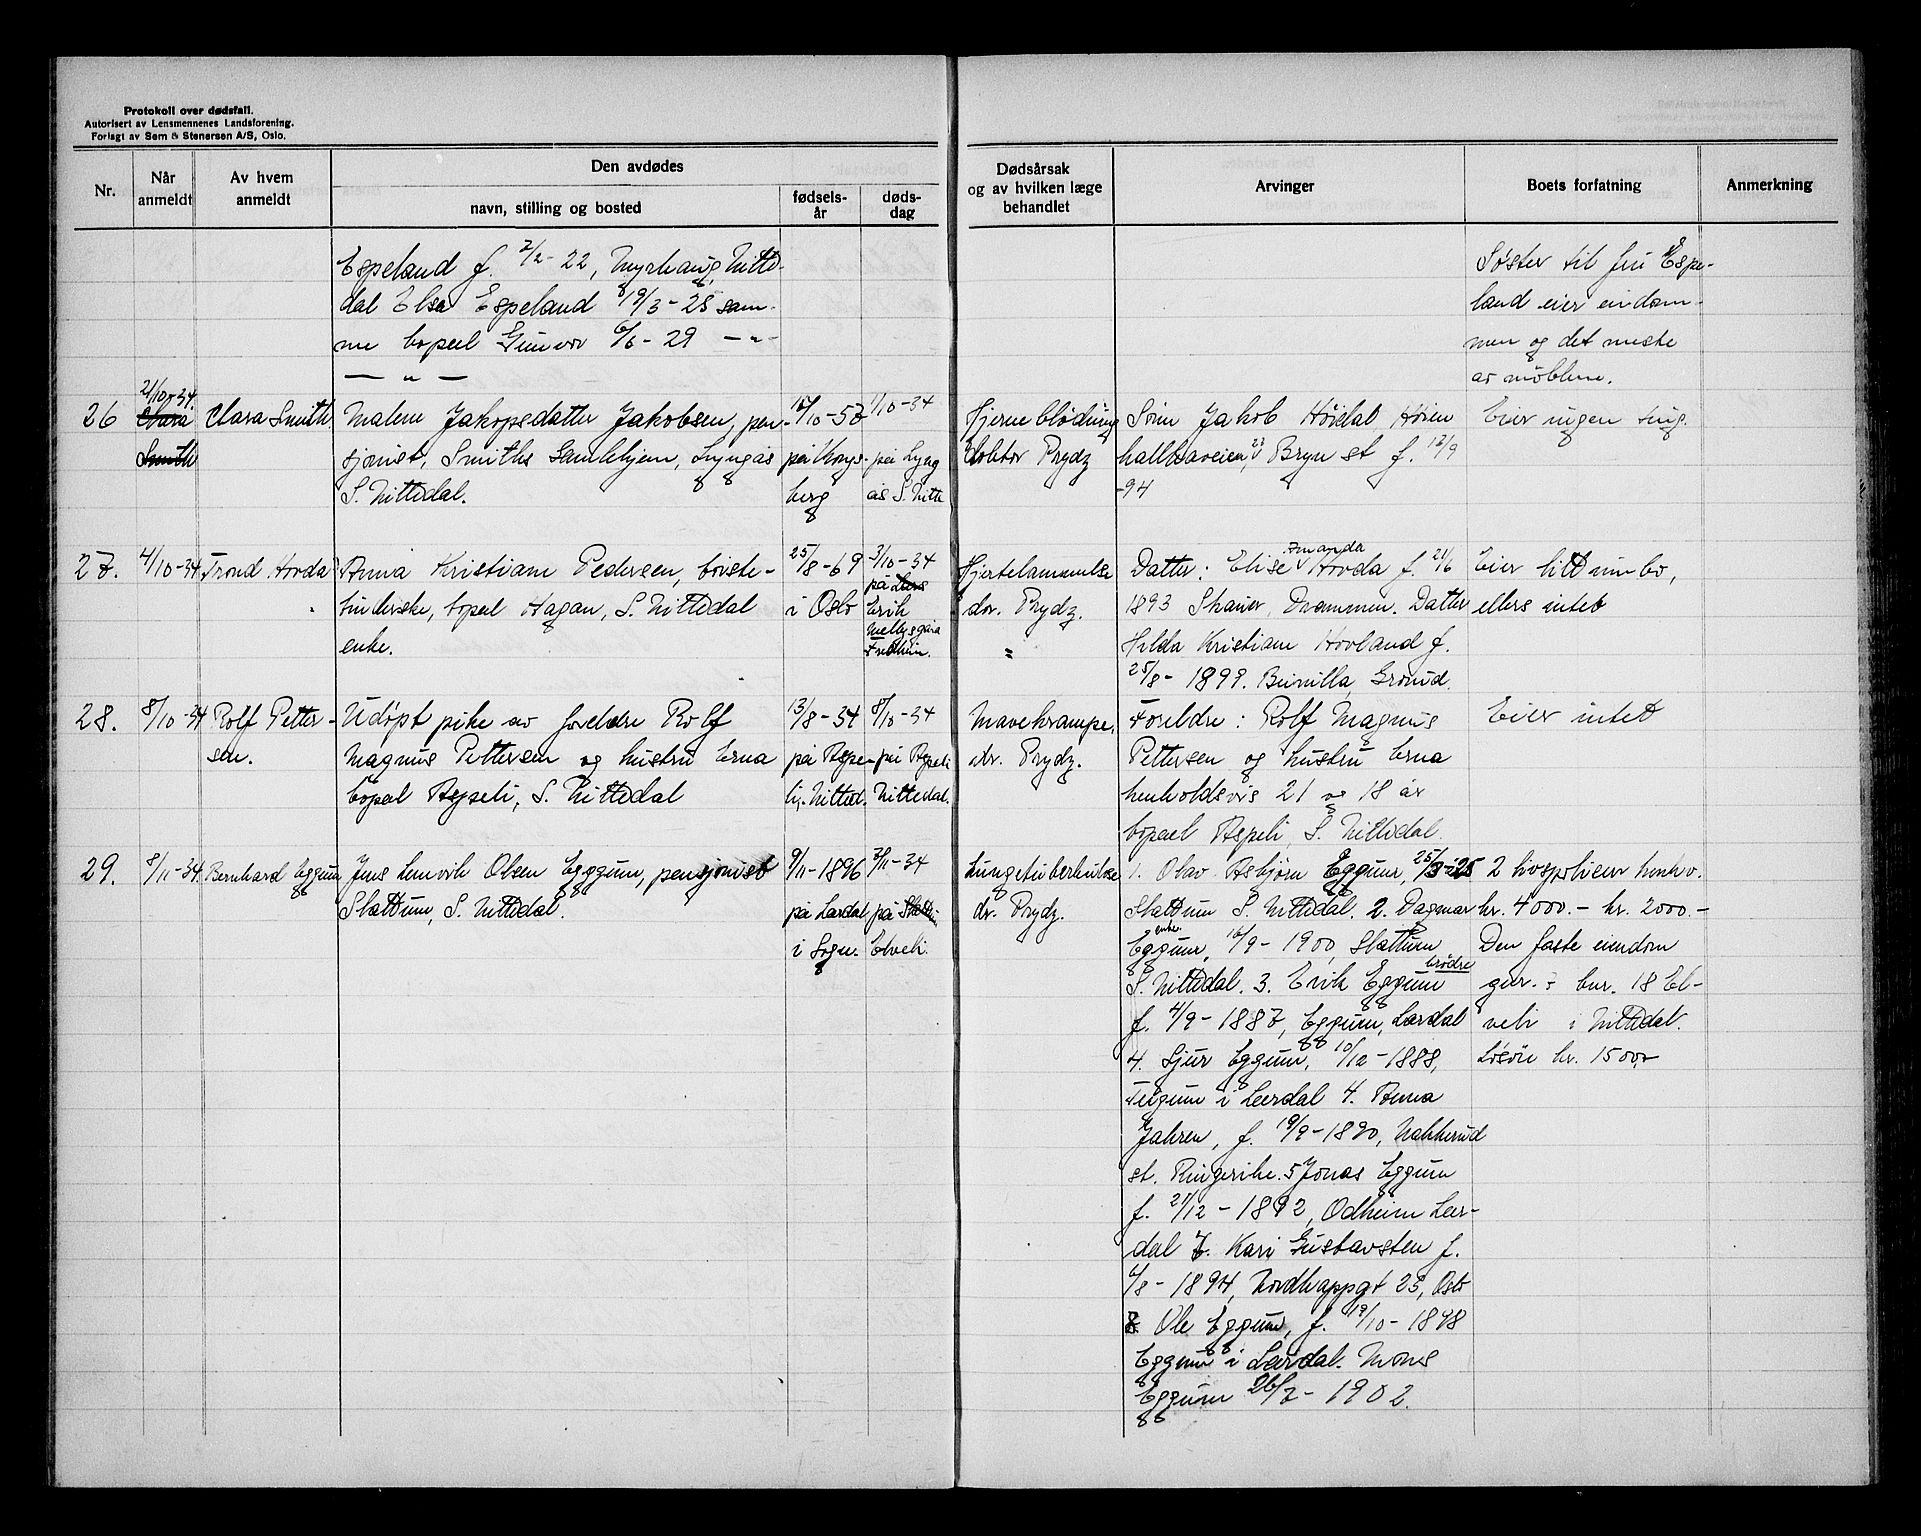 Protokoll over dødsfall.
Autorisert av Lensmennenes Landsforening.
Forlagt av Sem & Stenersen A/S, Oslo.
Nr.
Når
anmeldt
Av hvem
anmeldt
Den avdødes
navn, stilling og bosted
fødsels-
år
døds-
dag
Dødsårsak
og av hvilken læge
behandlet
Arvinger
Boets forfatning
Anmerkning
Espeland f. 2/2-22, Myrhaug, Nitte-
dal Elsa Espeland 19/3-25 sam-
me bopæl Gunvor 6/6-29 — " —
— " —
Søster til fru Espe-
land eier eiendom-
men og det meste
av møblene.
26
21/10-34.
Clara
Smith
Clara Smith
Malene Jakopsdatter Jakobsen, pen-
sjonist, Smiths Gamlehjem, Lyngås
S. Nittedal.
/10-57
på Kongs-
berg
/10-34
på Lyng
ås S. Nitte
Hjerneblødning
doktor Prydz
Sønn Jakob Høidal Høien
hallsaveien, 23 Bryn st f. 12/9
-94
Eier ingen ting.
27.
4/10-34
Trond Hovda
Anna Kristiane Pedersen, børste-
binderske, bopæl Hagan, S. Nittedal
enke.
25/8-69
i Oslo
3/10-34
på Lars
Erik
Mellysgård
Fredheim.
Hjertelammelse
dr. Prydz.
"
Datter: Elise Amanda Hovda f. 21/6
1893 Skauer, Drammen. Datter
Hilda Kristiane Hovland f.
25/8-1899. Bunilla, Grorud.
Eier litt innbo,
ellers intet
28.
8/10-34
Rolf Petter-
sen.
Udøpt pike av foreldre Rolf
Magnus Pettersen og hustru Erna
bopæl Aspeli, S. Nittedal
13/8-34
på Aspe-
li, Nitted.
8/10-34
på Aspeli
Nittedal.
Mavekrampe.
dr. Prydz.
Foreldre: Rolf Magnus
Pettersen og hustru Erna
henholdsvis 21 og 18 år
bopæl Aspeli, S. Nittedal.
Eier intet
29.
8/11-34.
Bernhard Eggum
Jens Lemvik Olsen Eggum, pensjonist
Slattum, S. Nittedal.
9/11-1896
på Lærdal
i Sogn.
7/11-34
på
Elveli.
Lungetuberkulose
dr. Prydz.
1. Olav Asbjørn Eggum, 25/3-25
Slattum S. Nittedal. 2. Dagmar
Eggum, enke. 16/9-1900, Slattum
S. Nittedal. 3. Erik Eggum brødre
f. 4/9-1887, Eggum, Lærdal
4. Sjur Eggum, 10/12-1888,
i Lærdal 4. Anna
Jahren, f. 19/9-1890, Nakkerud
st. Ringerike. 5 Jonas Eggum
f. 21/12-1892, Odheim Lær-
dal 7. Kari Gustavsten f.
6/8-1894, Nordkappgt 25, Oslo
8 Ole Eggum, f. 19/10-1898
Eggum i Lærdal. Mons
Eggum 26/7-1902.
2 livspoliser henhv.
kr. 4000.- kr. 2000.-
Den faste eiendom
gnr. 7 bnr. 18 El-
veli i Nittedal.
Løsøre kr. 1500,-